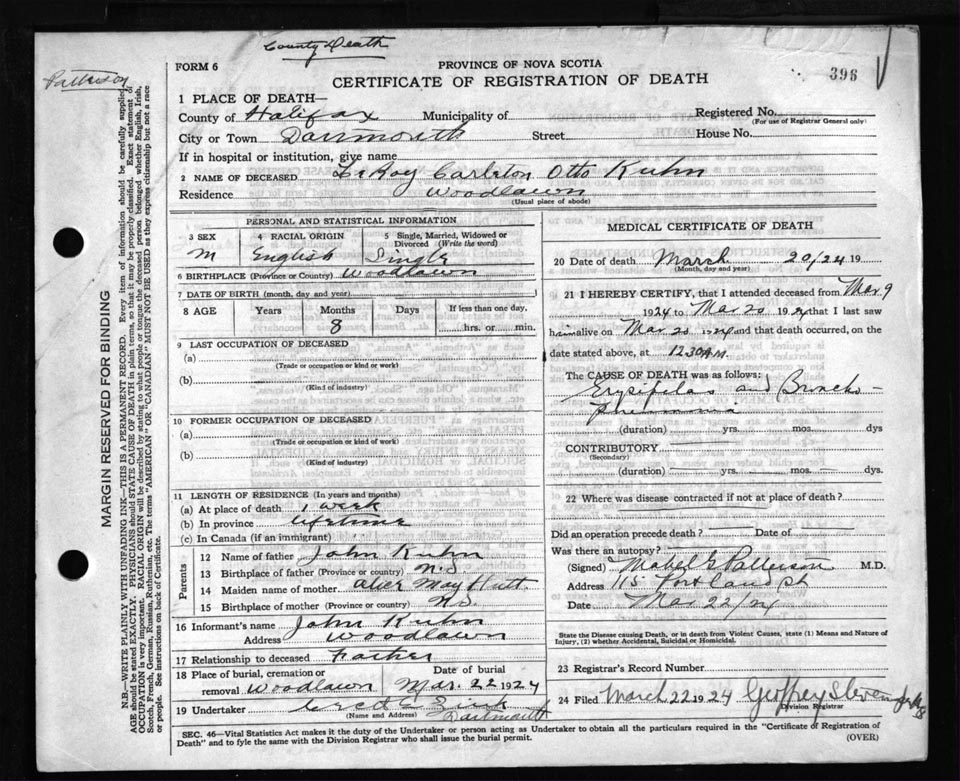 County Death
Patterson
FORM 6
PROVINCE OF NOVA SCOTIA
CERTIFICATE OF REGISTRATION OF DEATH
396
1 PLACE OF DEATH—
County of Halifax Municipality of Registered No.
(For use of Registrar General only)
City or Town Dartmouth Street House No.
If in hospital or institution, give name
2 NAME OF DECEASED LeRoy Carleton Otto Kuhn
Residence Woodlawn
(Usual place of abode)
PERSONAL AND STATISTICAL INFORMATION
3 SEX 4 RACIAL ORIGIN 5 Single, Married, Widowed or Divorced (Write the word)
M English Single
6 BIRTHPLACE (Province or Country) Woodlawn
7 DATE OF BIRTH (month, day and year)
8 AGE Years Months Days If less than one day,
8 hrs. or min.
9 LAST OCCUPATION OF DECEASED
(a)
(Trade or occupation or kind or work)
(b)
(Kind of industry)
10 FORMER OCCUPATION OF DECEASED
(a)
(Trade or occupation or kind of work)
(b)
(Kind of industry)
11 LENGTH OF RESIDENCE (In years and months)
(a) At place of death 1 week
(b) In province lifetime
(c) In Canada (if an immigrant)
Parents
12 Name of father John Kuhn
13 Birthplace of father (Province or country) N.S.
14 Maiden name of mother Alice May Hutt
15 Birthplace of mother (Province or country) N.S.
16 Informant's name John Kuhn
Address Woodlawn
17 Relationship to deceased Father
18 Place of burial, cremation or removal Woodlawn Date of burial Mar. 22 1924
19 Undertaker
(Name and Address) Dartmouth
MEDICAL CERTIFICATE OF DEATH
20 Date of death March 20/24 19
(Month, day and year)
21 I HEREBY CERTIFY, that I attended deceased from Mar 9
1924 to Mar 20 1924 that I last saw
him alive on Mar 20 1924 and that death occurred, on the
date stated above, at 12.30 A.M.
The CAUSE OF DEATH was as follows:
Erysipelas and Broncho-
pneumonia
(duration) yrs. mos. dys
CONTRIBUTORY
(Secondary)
(duration) yrs. mos. dys.
22 Where was disease contracted if not at place of death?
Did an operation precede death Date of
Was there an autopsy?
(Signed) Mabel G Patterson M.D.
Address 115 Portland St
Date Mar 22/24
State the Disease causing Death, or in death from Violent Causes, state (1) Means and Nature of
Injury, (2) whether Accidental, Suicidal or Homicidal.
23 Registrar's Record Number
24 Filed March 22 1924 Geoffrey Stevens
Division Registrar
SEC. 46—Vital Statistics Act makes it the duty of the Undertaker or person acting as Undertaker to obtain all the particulars required in the "Certificate of Registration of
Death" and to fyle the same with the Division Registrar who shall issue the burial permit.
(OVER)
MARGIN RESERVED FOR BINDING
N.B.—WRITE PLAINLY WITH UNFADING INK—THIS IS A PERMANENT RECORD. Every item of information should be carefully supplied.
AGE should be stated EXACTLY. PHYSICIANS should STATE CAUSE OF DEATH in plain terms, so that it may be properly classified. Exact statement of
OCCUPATION is very important. RACIAL ORIGIN will be described by stating to what people or tongue the deceased person belonged whether English, Irish,
Scotch, French, German, Russian, Ruthenian, etc. The terms "AMERICAN" or "CANADIAN" MUST NOT BE USED as they express citizenship but not a race
or people. See instructions on back of Certificate.